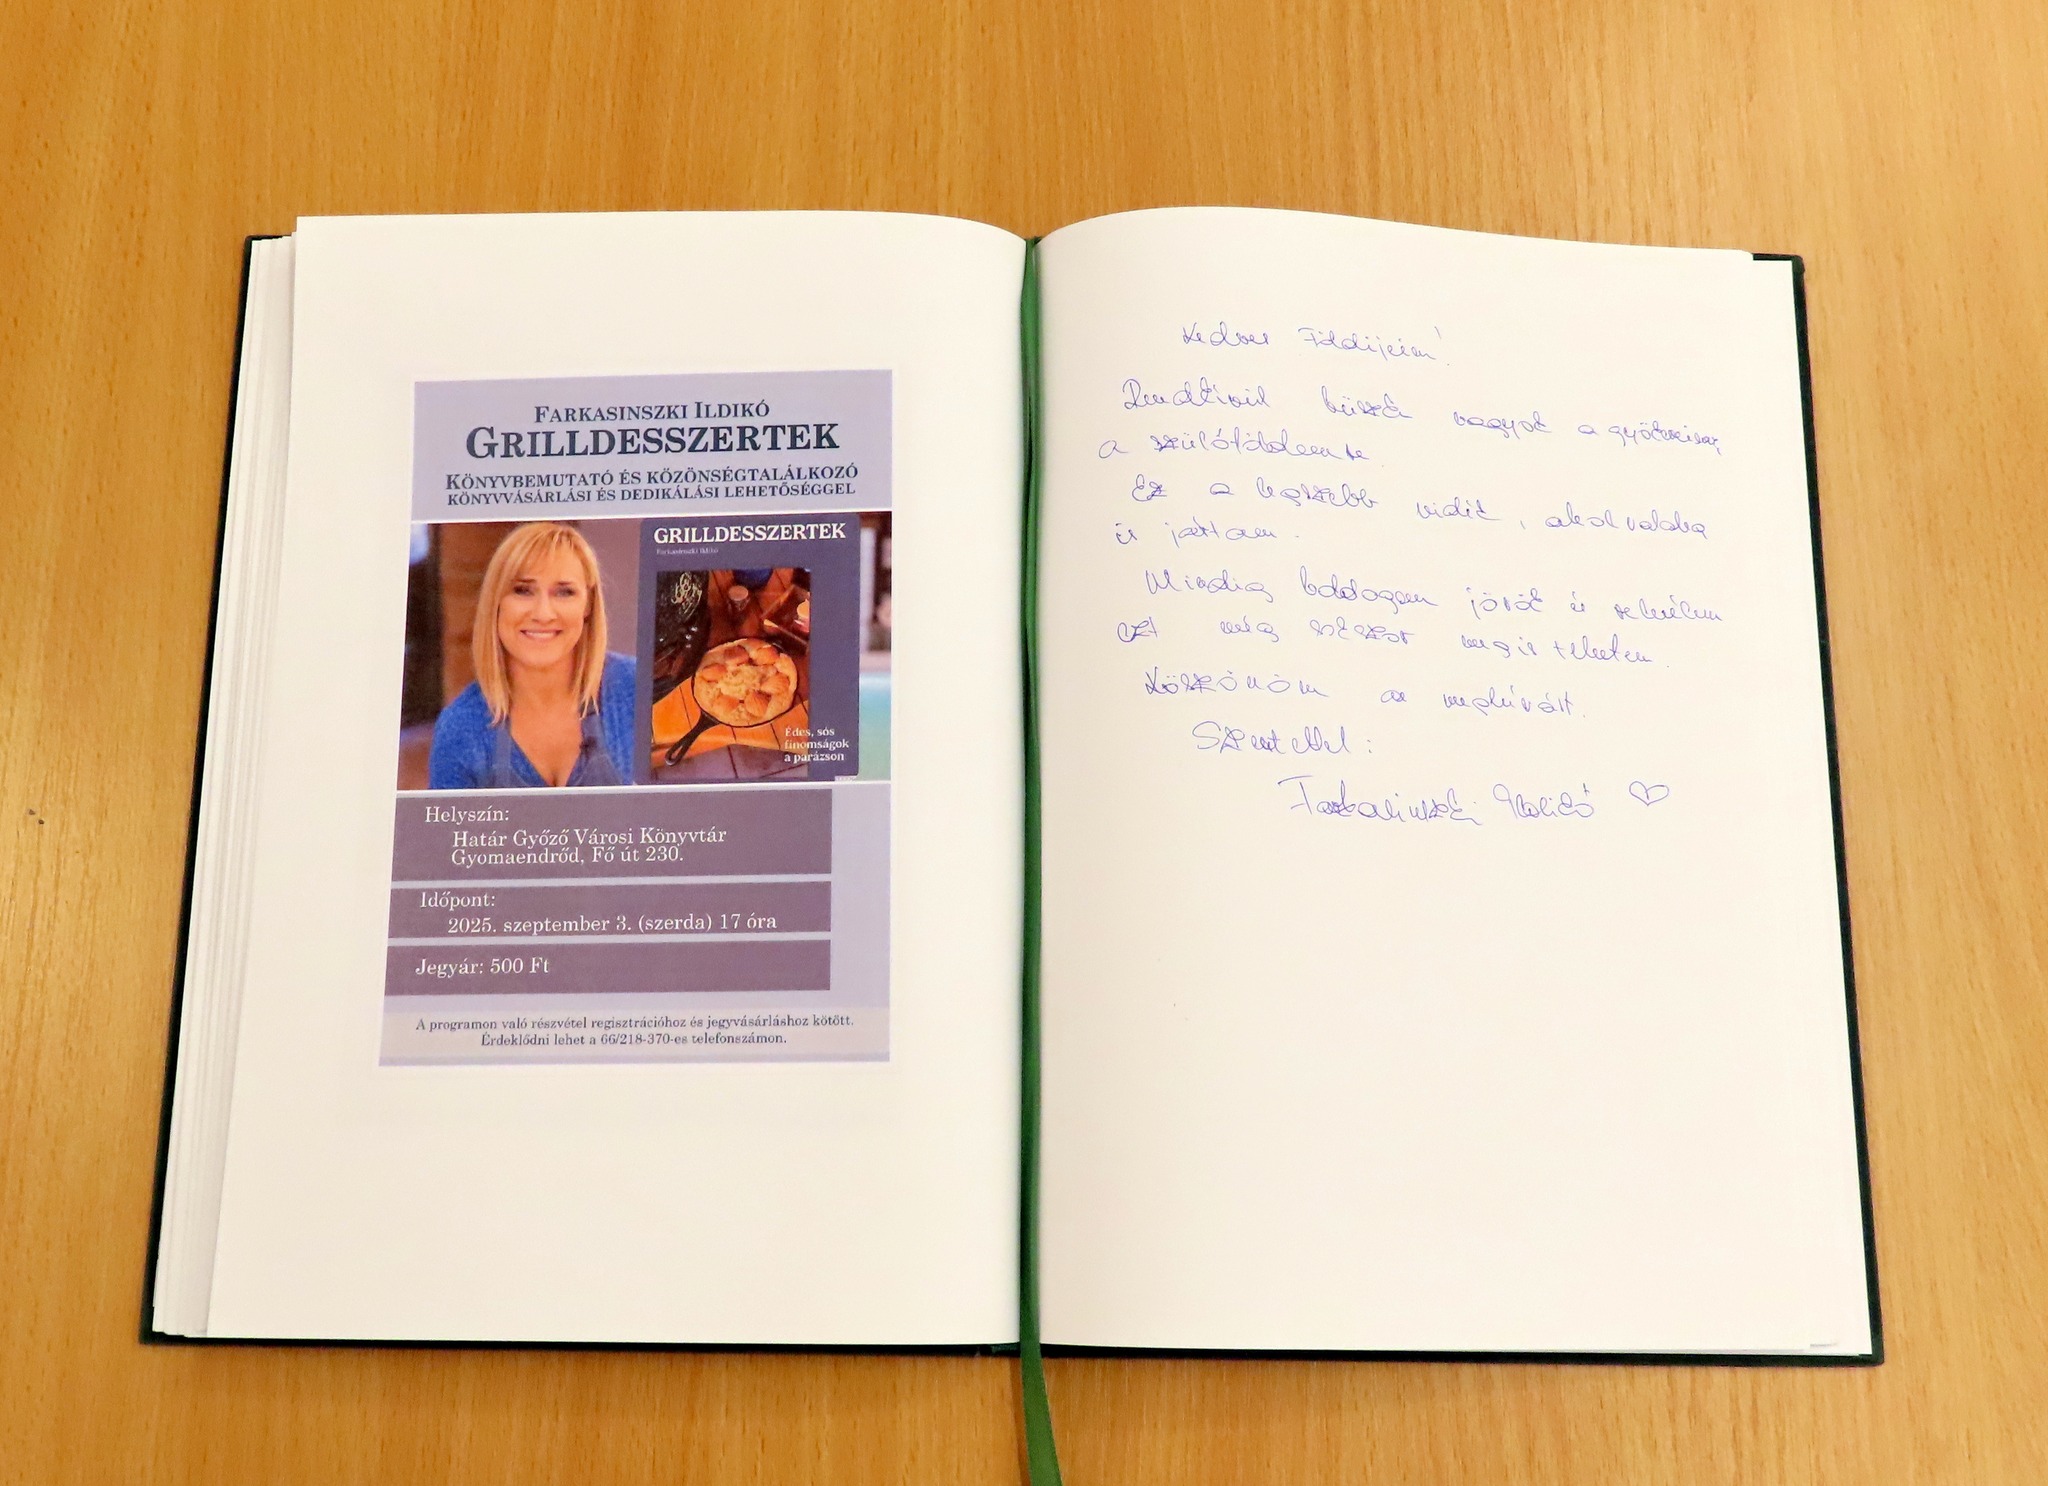 FARKASINSZKI ILDIKÓ
GRILLDESSZERTEK
KÖNYVBEMUTATÓ ÉS KÖZÖNSÉGTALÁLKOZÓ
KÖNYVVÁSÁRLÁSI ÉS DEDIKÁLÁSI LEHETŐSÉGGEL
GRILLDESSZERTEK
Farkasinszki Ildikó
Édes, sós
finomságok
a parázson
Helyszín:
Határ Győző Városi Könyvtár
Gyomaendrőd, Fő út 230.
Időpont:
2025. szeptember 3. (szerda) 17 óra
Jegyár: 500 Ft
A programon való részvétel regisztrációhoz és jegyvásárláshoz kötött.
Érdeklődni lehet a 66/218-370-es telefonszámon.
Kedves Földijeim!
Rendkívül büszke vagyok a gyökereimre,
a szülőföldemre.
Ez a legszebb vidék, ahol valaha
is jártam.
Mindig boldogan jövök és remélem
ezt még sokszor megis tehetem.
Köszönöm a meghívást.
Szeretettel:
Farkasinszki Ildikó ♡